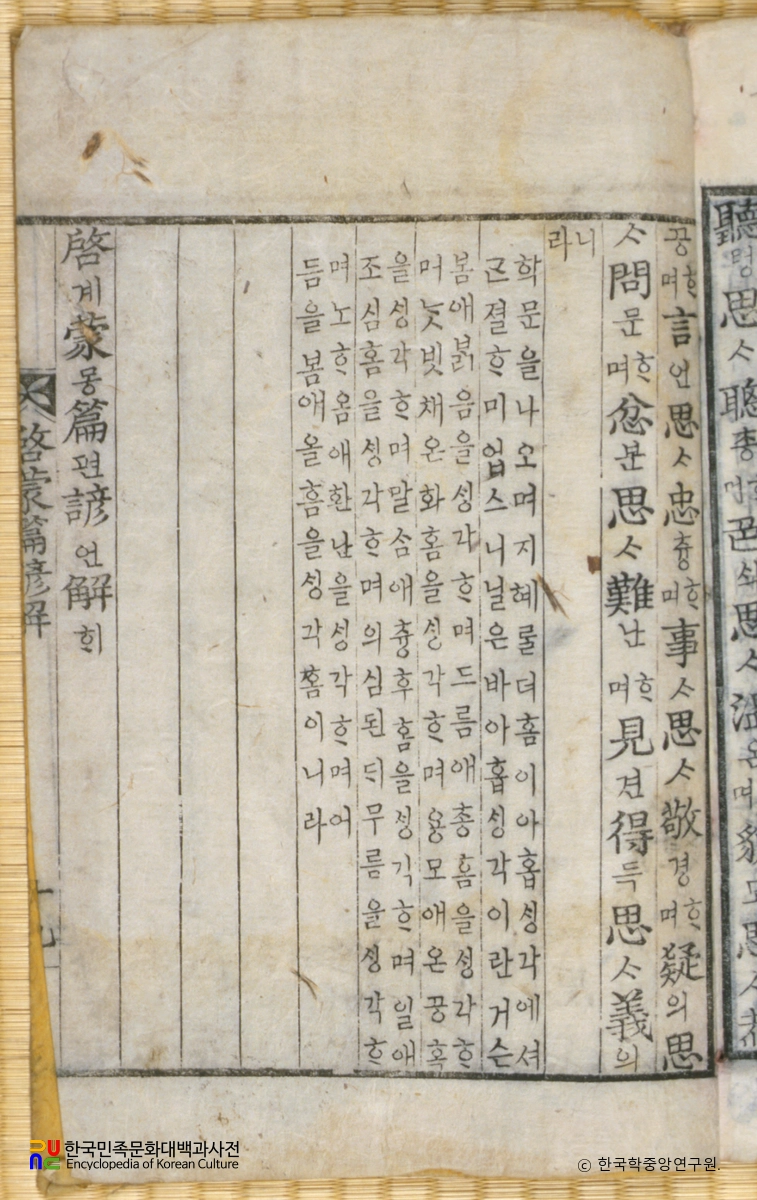 聽思ᄉ聰총思ᄉ溫온며貌모思ᄉ
공ᄒᆞ며言언思ᄉᆞ忠튱ᄒᆞ며事ᄉᆞ思ᄉᆞ敬경ᄒᆞ며疑의思
ᄉᆞ問문ᄒᆞ며忿분思ᄉᆞ難난ᄒᆞ며見견得득思ᄉᆞ義의
니라
학문을나오며지혜룰더홈이아홉싱각에셔
근졀ᄒᆞ미업스니닐은바아홉싱각이란거슨
봄애붉음을싱각ᄒᆞ며드름애총홈을싱각ᄒᆞ
며ᄂᆞᆺ빗채온화홈을싱각ᄒᆞ며용모애온공홈
을싱각ᄒᆞ며말ᄉᆞᆷ애튱후홈을싱각ᄒᆞ며일애
조심홈을싱각ᄒᆞ며의심된ᄃᆡ무름을싱각ᄒᆞ
며노ᄒᆞ옴애환난을싱각ᄒᆞ며어
듬을봄애올흠을싱각홈이니라
啓계蒙몽篇편諺언解ᄒᆡ
啓蒙篇諺解 十九
한국민족문화대백과사전
Encyclopedia of Korean Culture
ⓒ 한국학중앙연구원.